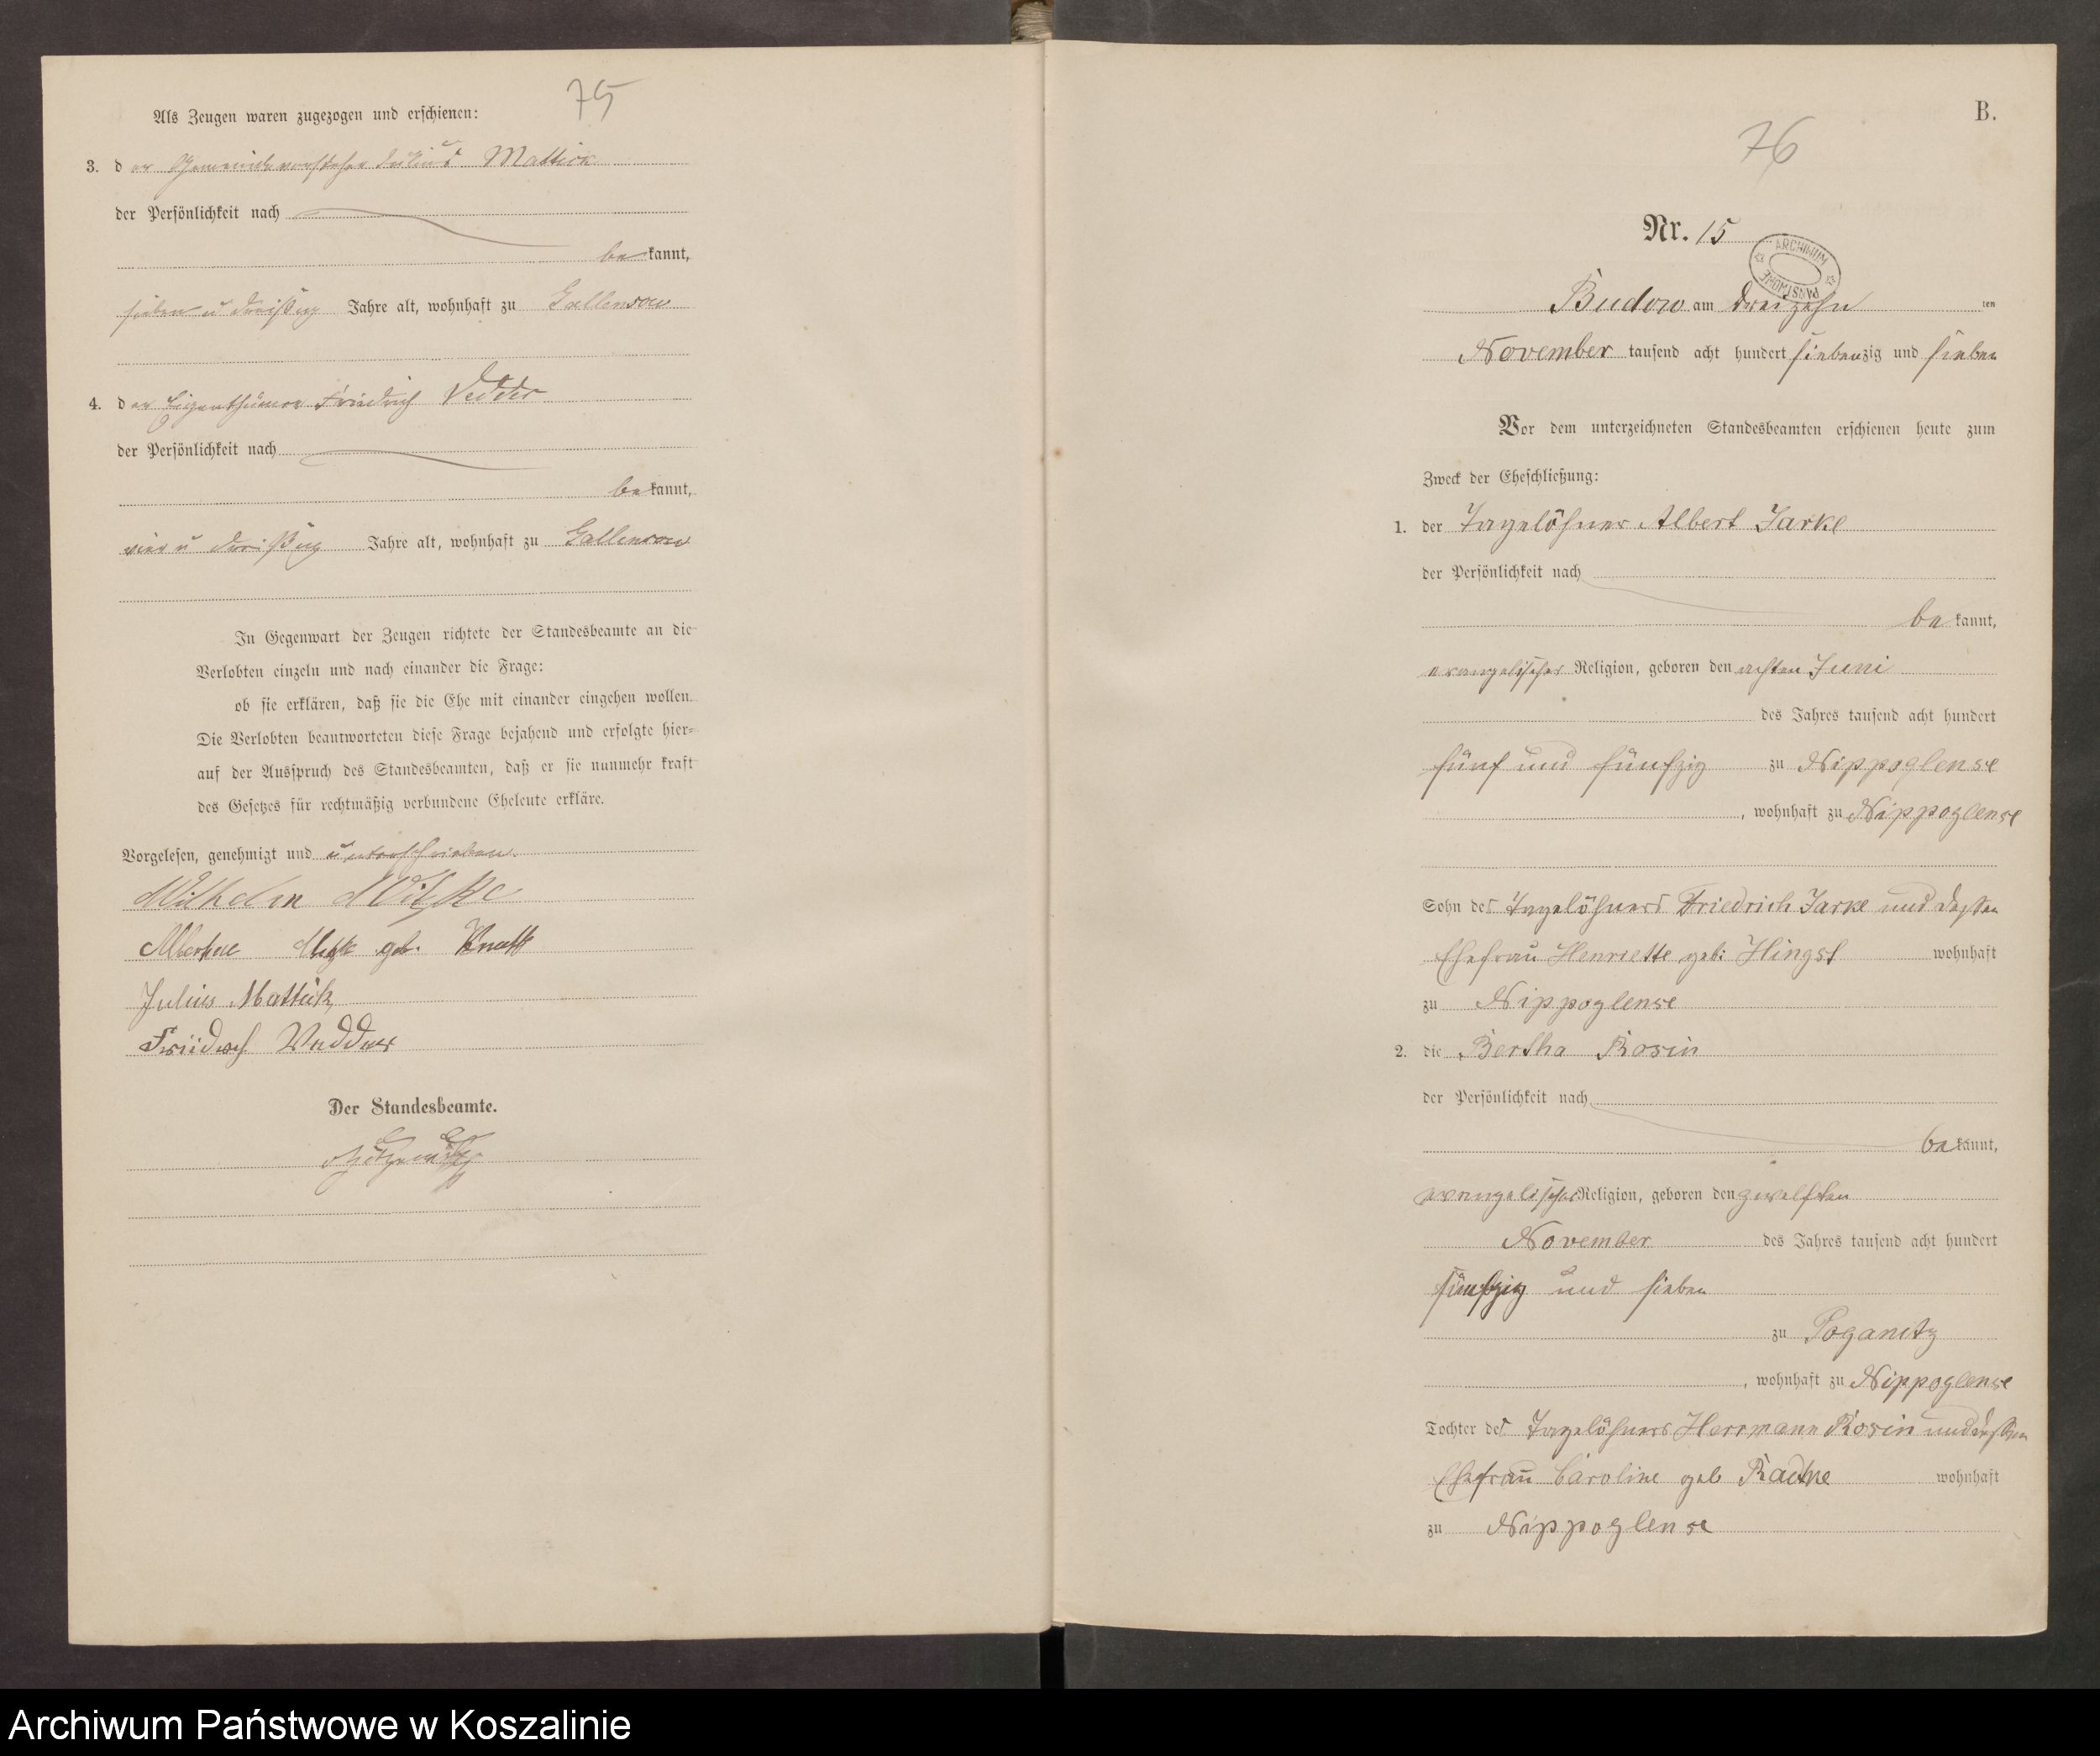 75
Als Zeugen waren zugezogen und erschienen:
3. der Gemeindevorsteher Julius Mattick
der Persönlichkeit nach
bekannt,
sieben u dreißig Jahre alt, wohnhaft zu Gallensow
4. der Eigenthümer Friedrich Vedder
der Persönlichkeit nach
bekannt,
vier u dreißig Jahre alt, wohnhaft zu Gallensow
In Gegenwart der Zeugen richtete der Standesbeamte an die
Verlobten einzeln und nach einander die Frage:
ob sie erklären, daß sie die Ehe mit einander eingehen wollen.
Die Verlobten beantworteten diese Frage bejahend und erfolgte hier=
auf der Ausspruch des Standesbeamten, daß er sie nunmehr kraft
des Gesetzes für rechtmäßig verbundene Eheleute erkläre.
Vorgelesen, genehmigt und unterschrieben.
Wilhelm
geb.
Julius Mattick
Friedrich Vedder
Der Standesbeamte.
B.
76
Nr. 15
ARCHIWUM PAŃSTWOWE
Budow am dreizehn ten
November tausend acht hundert siebenzig und sieben
Vor dem unterzeichneten Standesbeamten erschienen heute zum
Zweck der Eheschließung:
1. der Tagelöhner Albert Jarke
der Persönlichkeit nach
bekannt,
evangelischer Religion, geboren den achten Juni
des Jahres tausend acht hundert
fünf und fünfzig zu Nippoglense
, wohnhaft zu Nippoglense
Sohn des Tagelöhners Friedrich Jarke und dessen
Ehefrau Henriette geb: Hingst wohnhaft
zu Nippoglense
2. die Bertha Rosin
der Persönlichkeit nach
bekannt,
evangelischer Religion, geboren den zwölften
November des Jahres tausend acht hundert
fünfzig und sieben
zu Poganitz
, wohnhaft zu Nippoglense
Tochter des Tagelöhners Herrmann Rosin und dessen
Ehefrau Caroline geb Radtke wohnhaft
zu Nippoglense
Archiwum Państwowe w Koszalinie